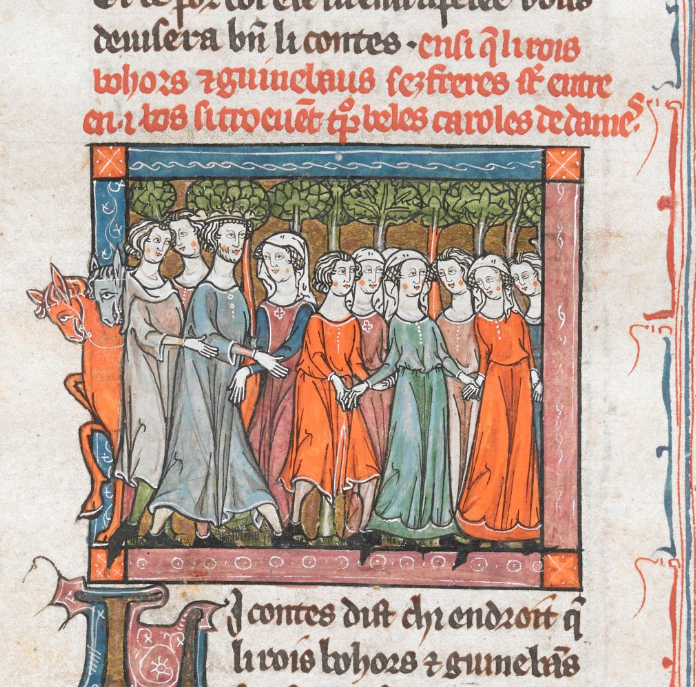 deuisera bñ li contes · ensi q̃ li rois
bohors ⁊ guinebaus ses freres st̃ entre
en · i · bos si troeuẽt
beles caroles de dames
I contes dist chi endroit q̃
li rois bohors ⁊ guinebãs